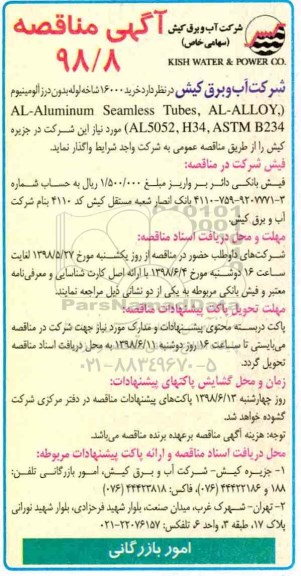 شرکت آب و برق کیش
(سهامی خاص)
KISH WATER & POWER CO.
آگهی مناقصه
۹۸/۸
شرکت آب و برق کیش در نظر دارد خرید ۱۶۰۰۰ شاخه لوله بدون درز آلومینیوم
(AL-Aluminum Seamless Tubes, AL-ALLOY,
AL5052, H34, ASTM B234) مورد نیاز این شرکت در جزیره
کیش را از طریق مناقصه عمومی به شرکت واجد شرایط واگذار نماید.
فیش شرکت در مناقصه:
فیش بانکی دائر بر واریز مبلغ ۱/۵۰۰/۰۰۰ ریال به حساب شماره
۳-۹۲۰۷۷۷۱-۷۵۹-۴۱۱۰ بانک انصار شعبه مستقل کیش کد ۴۱۱۰ بنام شرکت
آب و برق کیش.
مهلت و محل دریافت اسناد مناقصه:
شرکت‌های داوطلب حضور در مناقصه از روز یکشنبه مورخ ۱۳۹۸/۵/۲۷ لغایت
ساعت ۱۶ دوشنبه مورخ ۱۳۹۸/۶/۴ با ارائه اصل کارت شناسایی و معرفی‌نامه
معتبر و فیش بانکی مربوطه به یکی از دو نشانی ذیل مراجعه نمایند.
مهلت تحویل پاکت پیشنهادات مناقصه:
پاکت دربسته محتوی پیشنهادات و مدارک مورد نیاز جهت شرکت در مناقصه
می‌بایستی تا ساعت ۱۶ روز دوشنبه ۱۳۹۸/۶/۱۱ به محل دریافت اسناد مناقصه
تحویل گردد.
زمان و محل گشایش پاکتهای پیشنهادات:
روز چهارشنبه ۱۳۹۸/۶/۱۳ پاکت‌های پیشنهادات مناقصه در دفتر مرکزی شرکت
گشوده خواهد شد.
توجه: هزینه آگهی مناقصه برعهده برنده مناقصه می‌باشد.
محل دریافت اسناد مناقصه و ارائه پاکت پیشنهادات مربوطه:
۱- جزیره کیش- شرکت آب و برق کیش، امور بازرگانی تلفن:
۱۸۸ و ۴۴۴۲۲۱۸۶ (۰۷۶)، فاکس: ۴۴۴۲۳۸۱۸ (۰۷۶)
۲- تهران- شهرک غرب، میدان صنعت، بلوار شهید فرحزادی، بلوار شهید نورانی
پلاک ۱۷، طبقه ۳، واحد ۶، تلفکس: ۲۲۰۷۶۱۵۷-۰۲۱
امور بازرگانی
ParsNamadData
۰۲۱-۸۸۳۴۹۶۷۰-۵